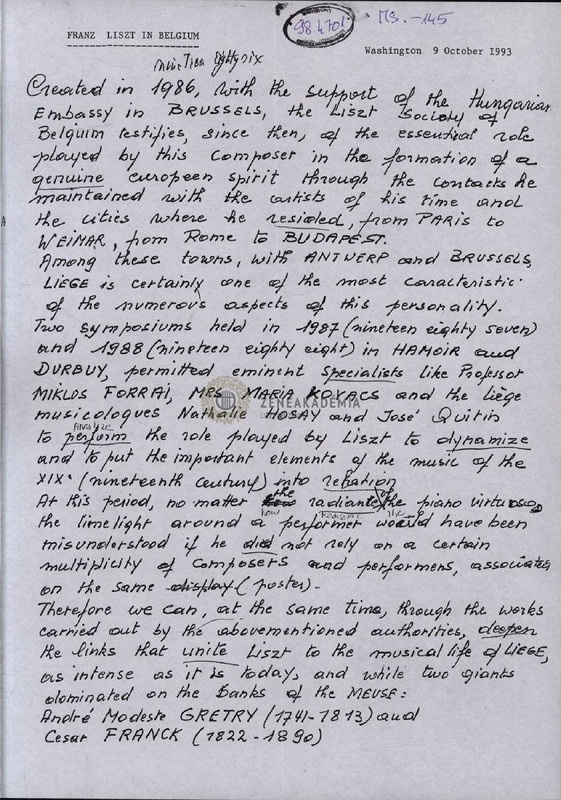 FRANZ LISZT IN BELGIUM
98.4701
MS.-145
Washington 9 October 1993
nineteen eighty six
Created in 1986, with the support of the Hungarian
Embassy in BRUSSELS, the Liszt Society of
Belgium testifies, since then, of the essential role
played by this composer in the formation of a
genuine european spirit through the contacts he
maintained with the artists of his time and
the cities where he resided, from PARIS to
WEIMAR, from Rome to BUDAPEST.
Among these towns, with ANTWERP and BRUSSELS,
LIEGE is certainly one of the most caracteristic
of the numerous aspects of this personality.
Two symposiums held in 1987 (nineteen eighty seven)
and 1988 (nineteen eighty eight) in HAMOIR and
DURBUY, permitted eminent specialists like Professor
MIKLOS FORRAI, MRS MARIA KOVACS and the liège
ZENEAKADEMIA
musicologues Nathalie HOSAY and José Quitin
analize
to perform the role played by Liszt to dynamize
and to put the important elements of the music of the
XIX' (nineteenth century) into relation
At this period, no matter the radiante the piano virtuoso,
how the
the limelight around a performer would have been
misunderstood if he did not rely on a certain
multiplicity of composers and performers, associated
on the same display (poster).
Therefore we can, at the same time, through the works
carried out by the abovementioned authorities, deepen
the links that unite Liszt to the musical life of LIEGE,
as intense as it is today, and while two giants
dominated on the banks of the MEUSE:
André Modeste GRETRY (1741-1813) and
Cesar FRANCK (1822-1890)